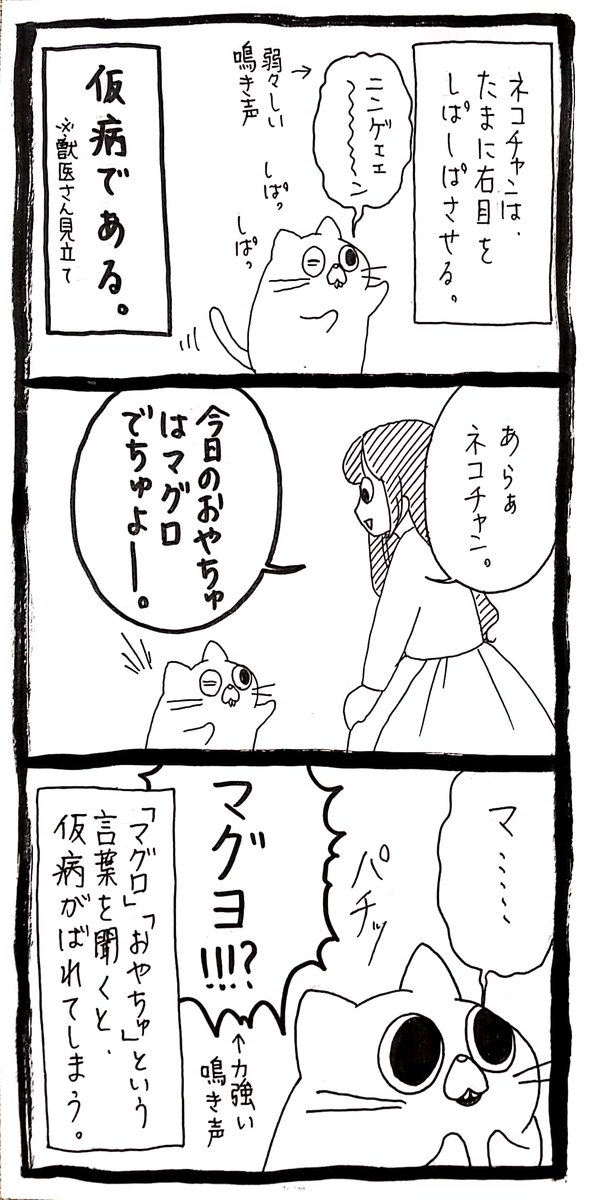 ネコチャンは、
たまに右目を
しぱしぱさせる。
ニンゲェェ
〜〜〜〜ン
→
弱々しい
鳴き声
しぱっ
しぱっ
仮病である。
※獣医さん見立て
あらぁ
ネコチャン。
今日のおやちゅ
はマグロ
でちゅよー。
マ……
パチッ
マグヨ
!!!?
←力強い
鳴き声
「マグロ」「おやちゅ」という
言葉を聞くと、
仮病がばれてしまう。